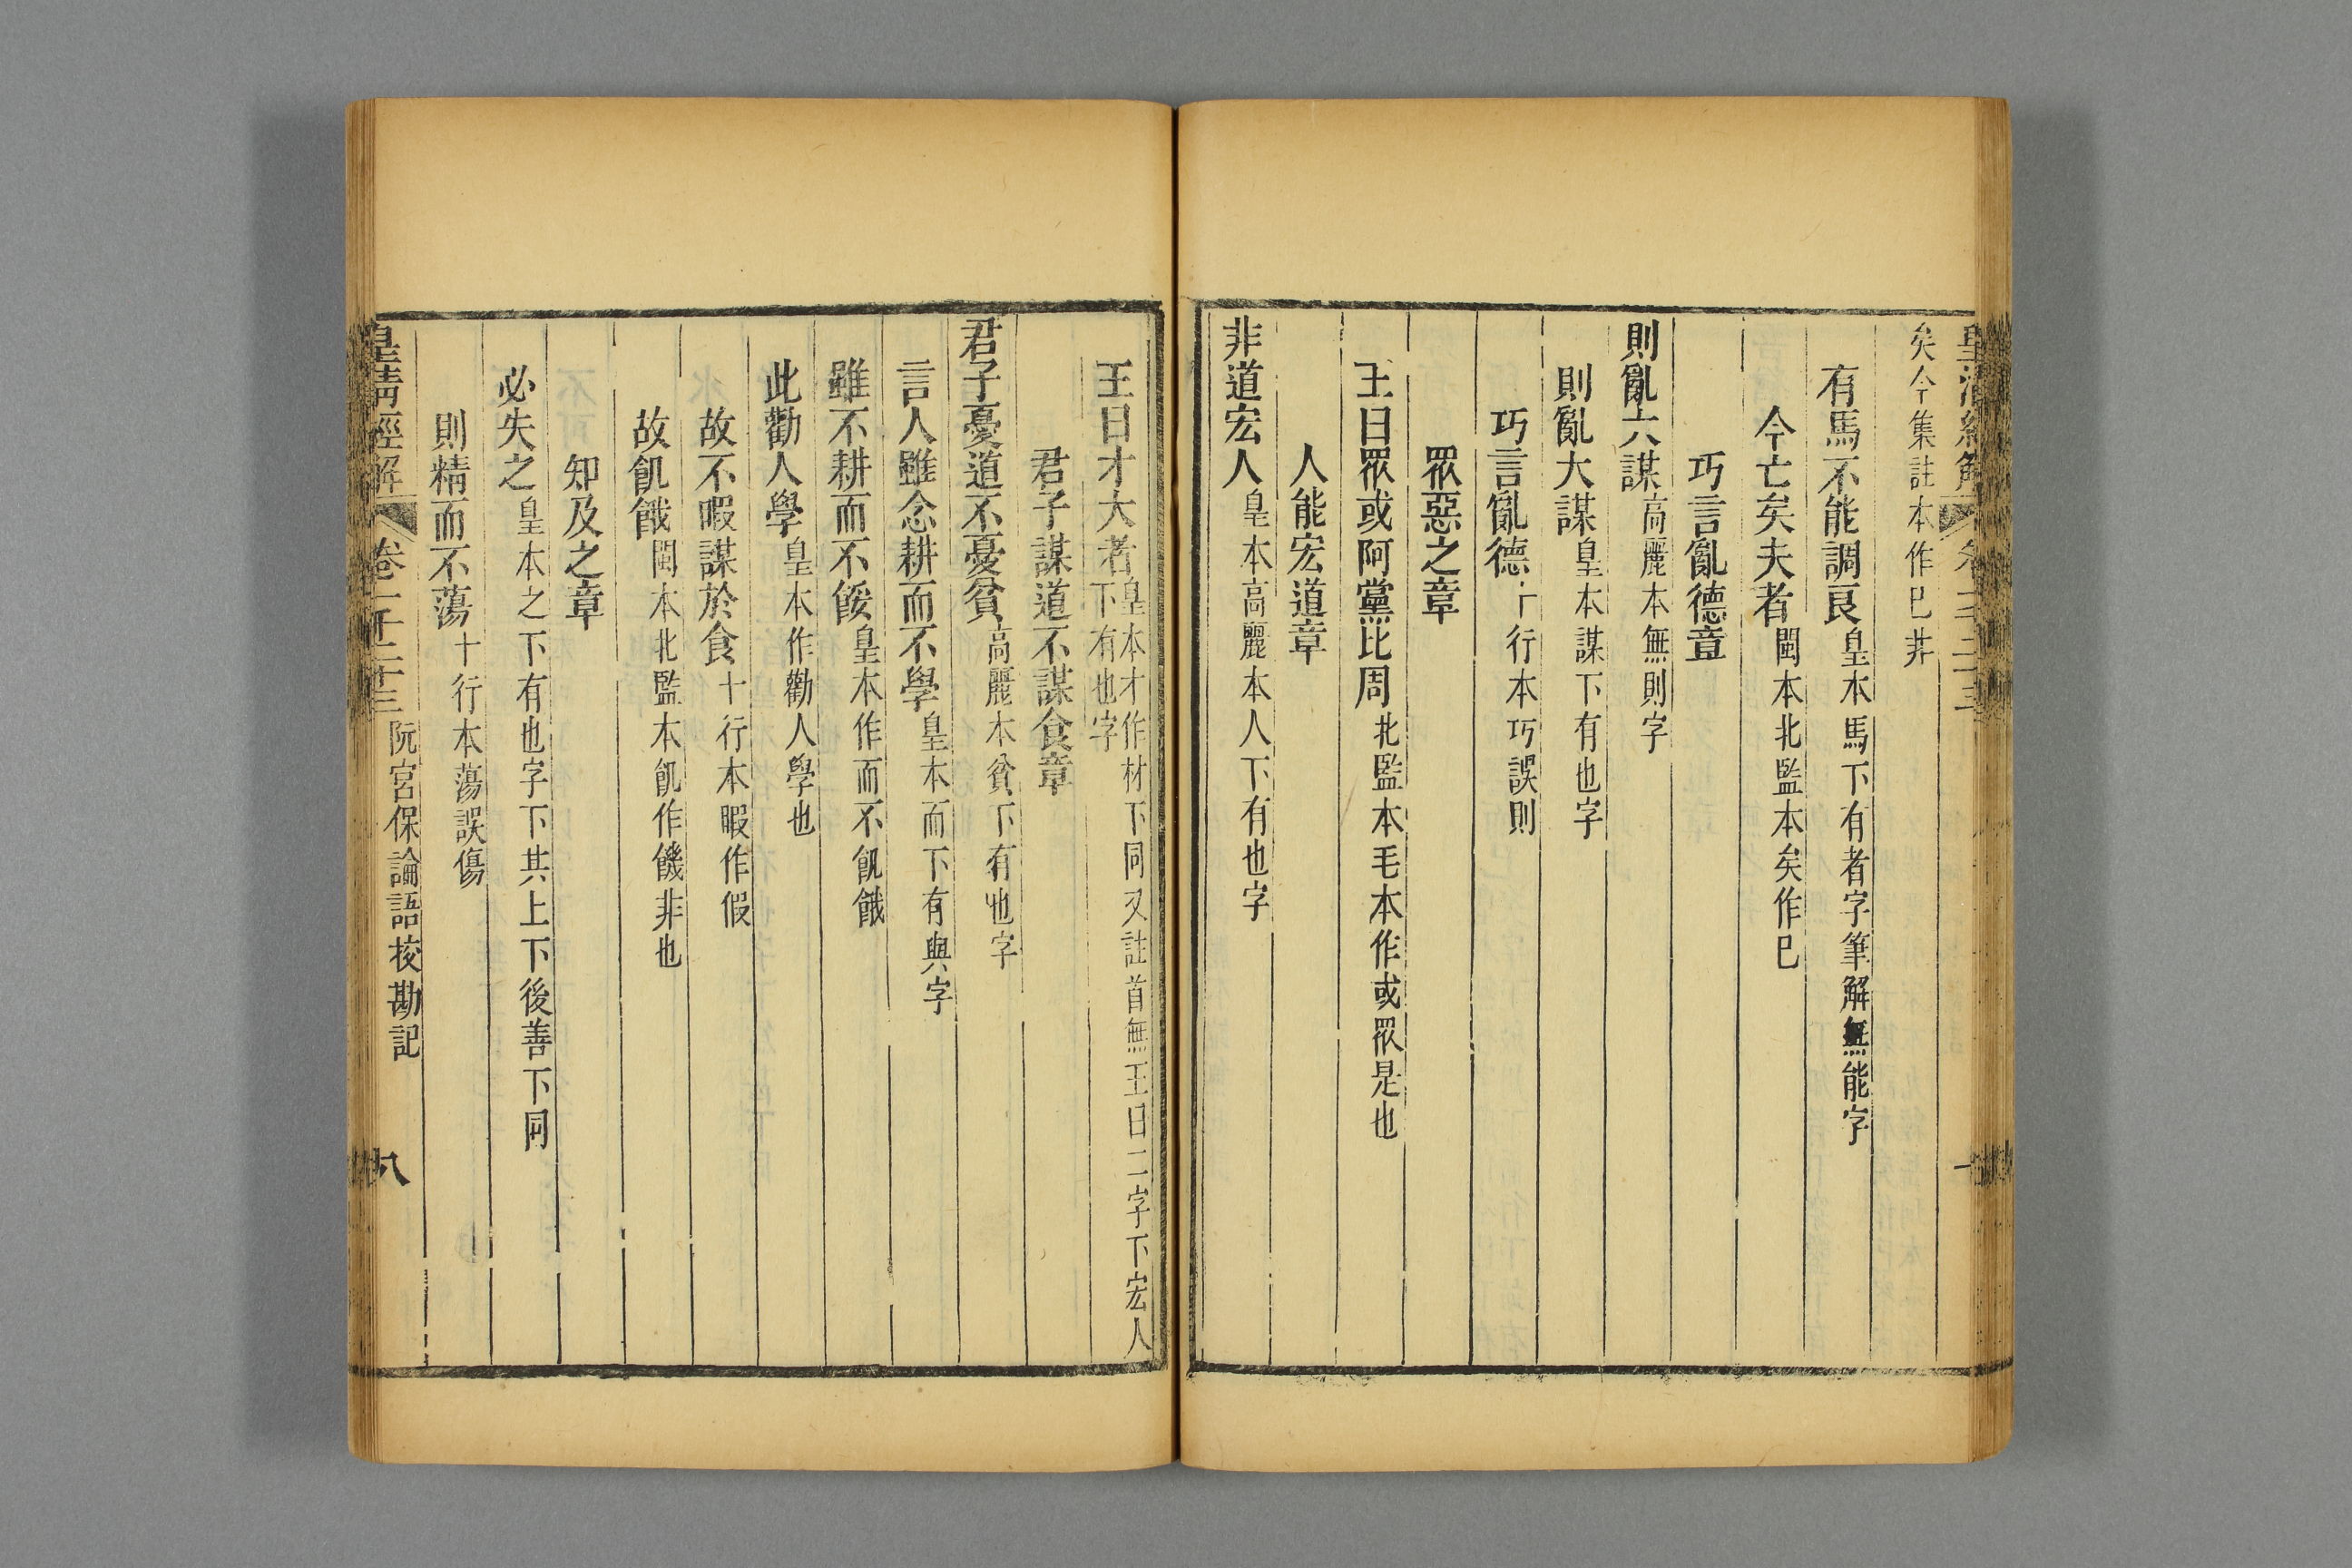 矣今集註本作已非
有馬不能調良皇本馬下有者字筆解無能字
今亡矣夫者閩本北監本矣作已
巧言亂德章
則亂大謀高麗本無則字
則亂大謀皇本謀下有也字
巧言亂德十行本巧誤則
眾惡之章
王曰眾或阿黨比周北監本毛本作或眾是也
人能宏道章
非道宏人皇本高麗本人下有也字
王曰才大者皇本才作材下同又註首無王曰二字下宏人
下有也字
君子謀道不謀食章
君子憂道不憂貧高麗本貧下有也字
言人雖念耕而不學皇本而下有與字
雖不耕而不餒皇本作而不飢餓
此勸人學皇本作勸人學也
故不暇謀於食十行本暇作假
故飢餓閩本北監本飢作饑非也
知及之章
必失之皇本之下有也字下其上下後善下同
則精而不蕩十行本蕩誤傷
皇清經解 卷一千二十三 阮宮保論語校勘記 八